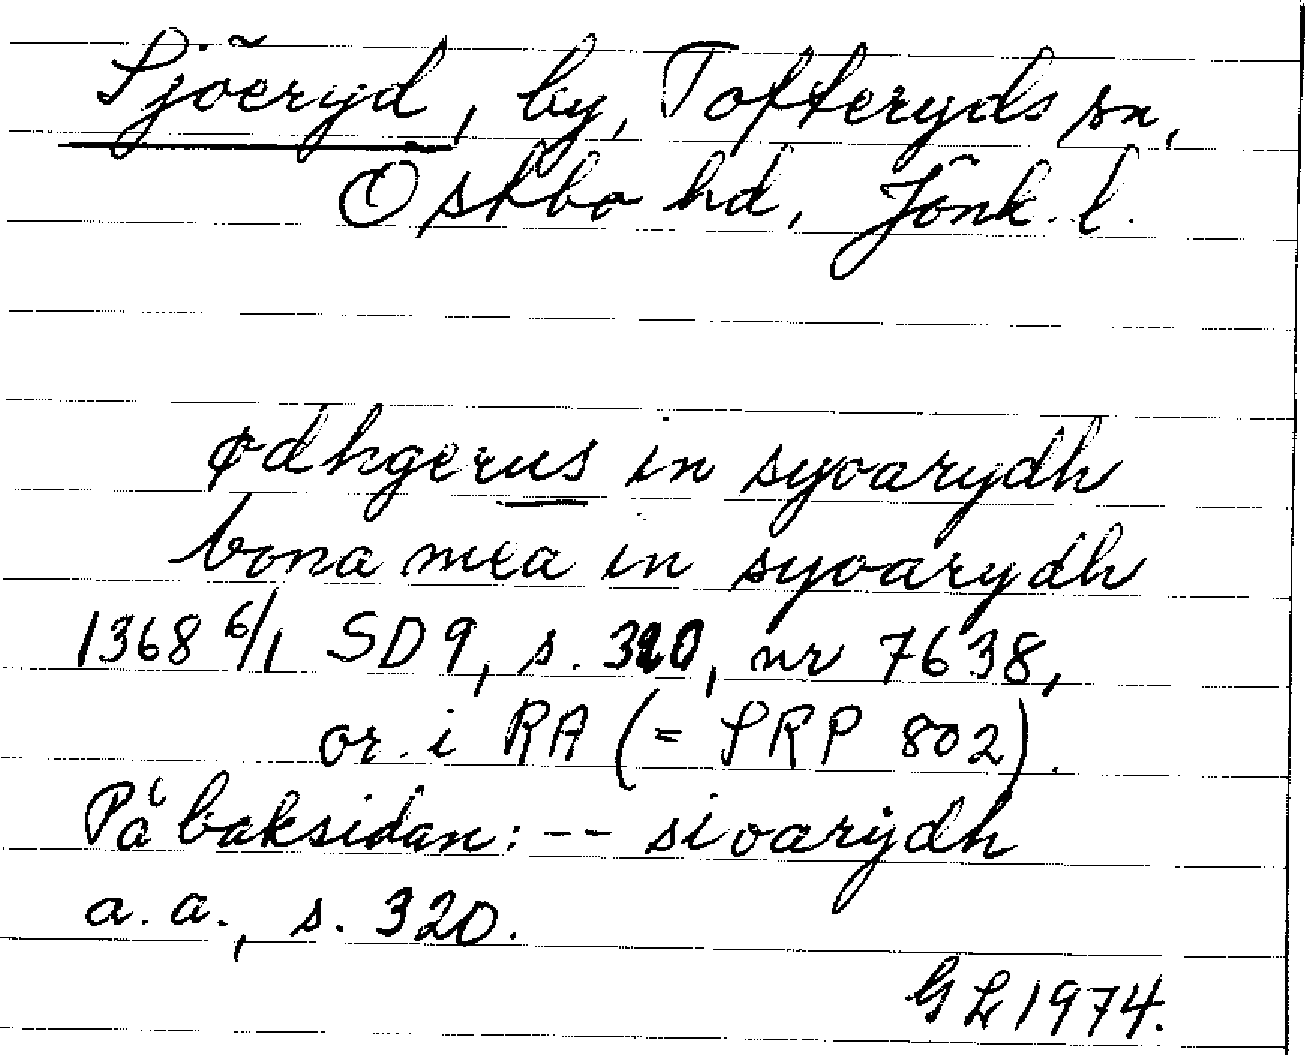 Sjöeryd, by, Tofteryds sn,
Östbo hd, Jönk. l.
ødhgerus in syoarydh
bona mea in syoarydh
1368 6/1 SD 9, s. 320, nr 7638,
or. i RA (= SRP 802).
På baksidan: -- sioarÿdh
a. a., s. 320.
GL 1974.